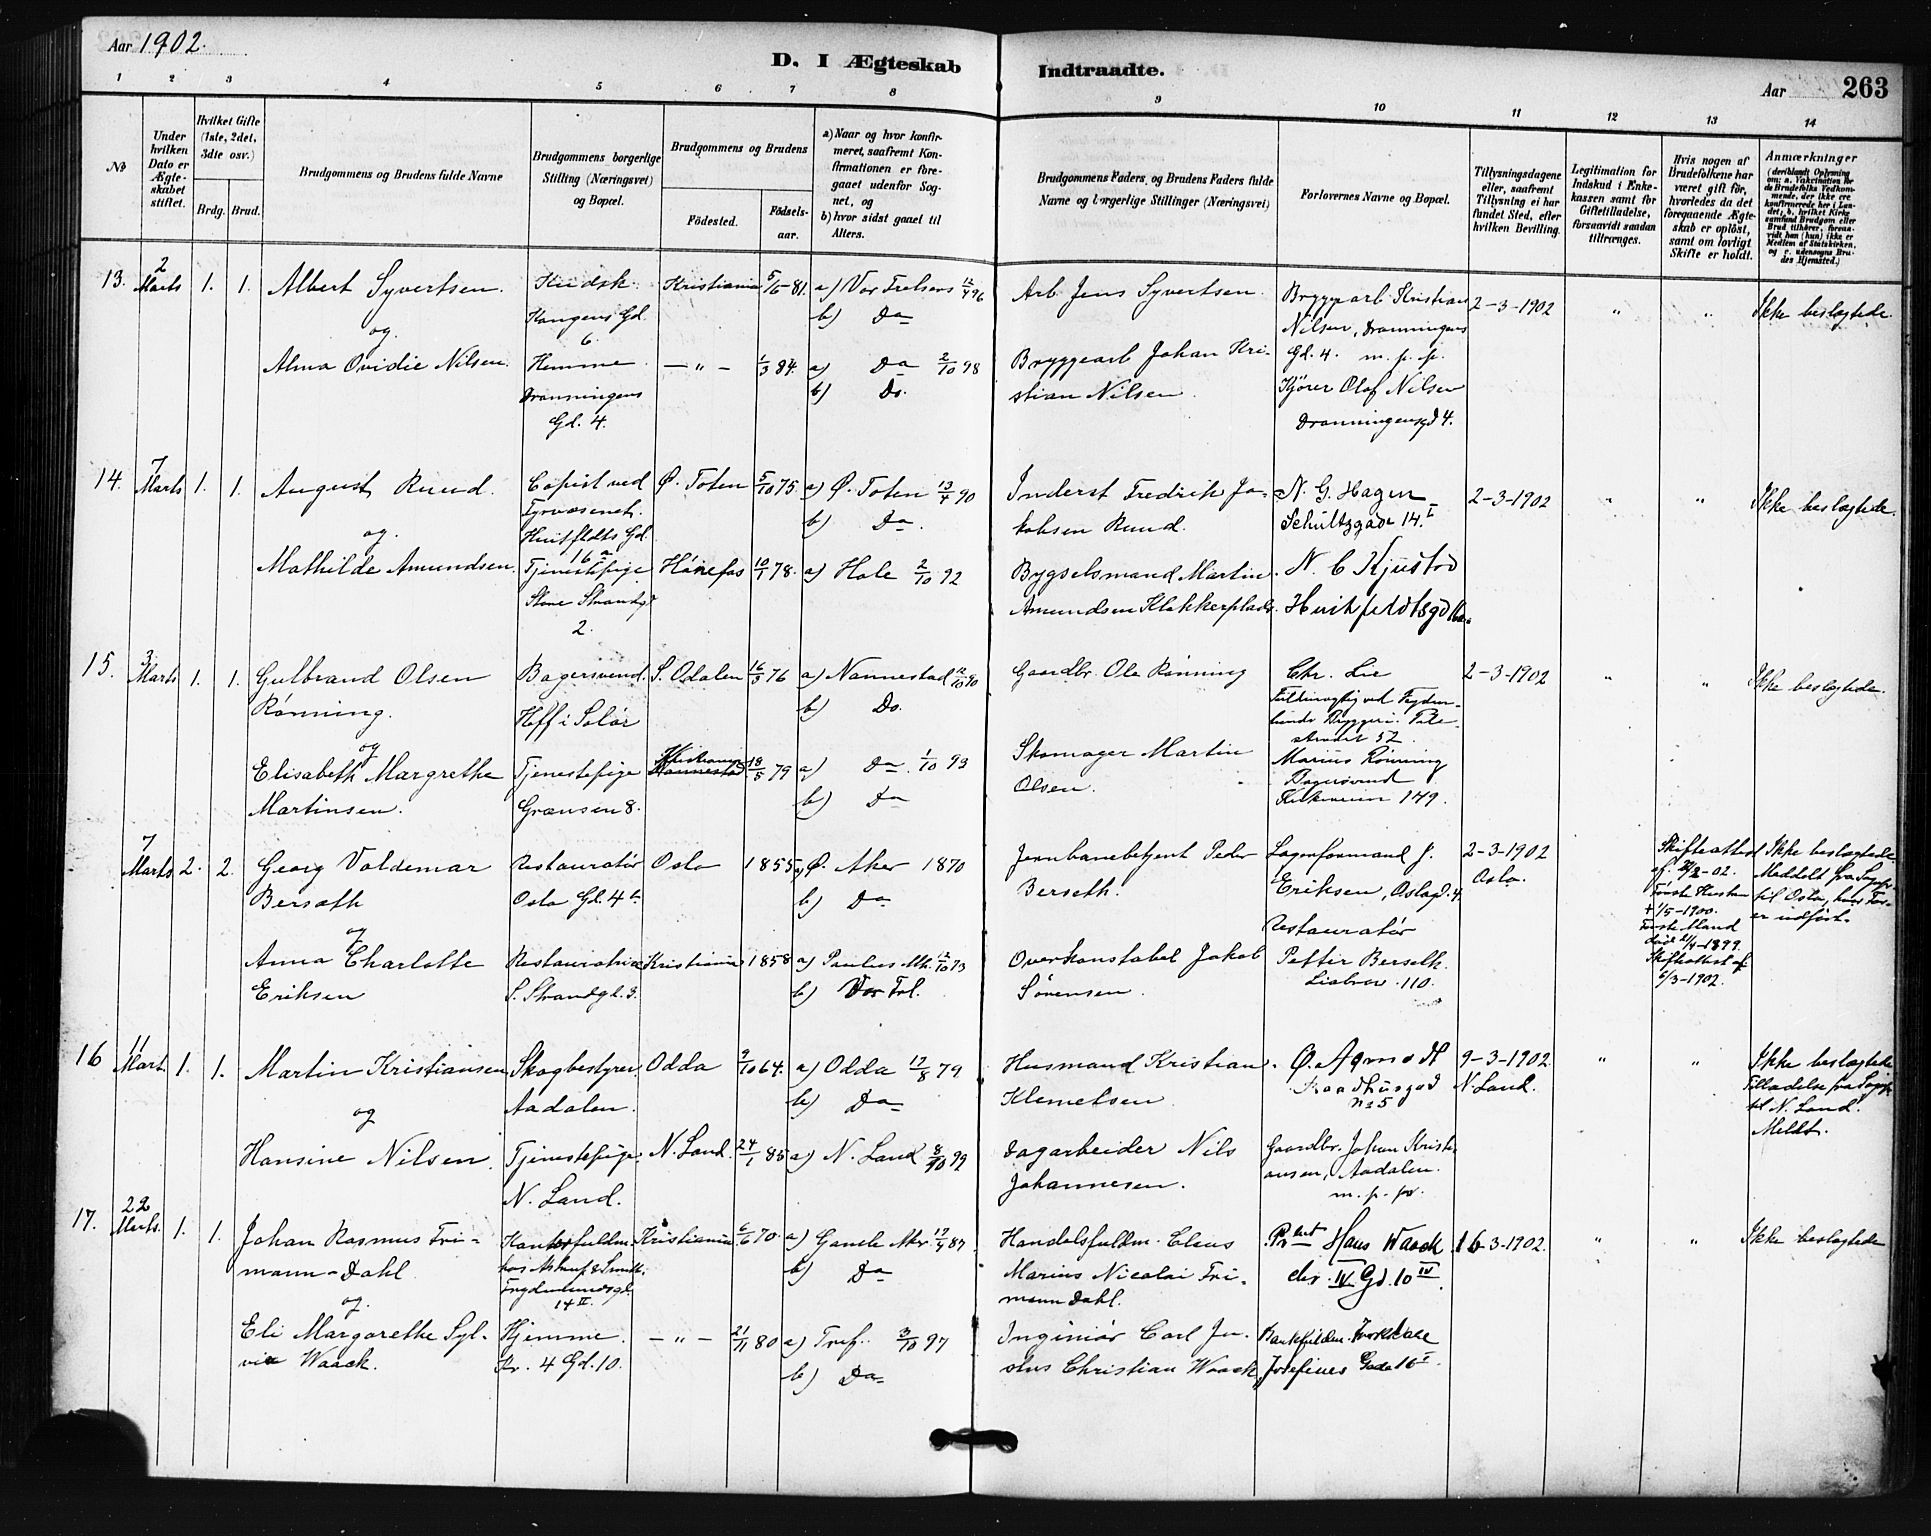 Aar 1902.
D. I Ægteskab
Indtraadte.
Aar
263
1 2 3 4 5 6 7 8 9 10 11 12 13 14
No
Under hvilken Dato er Ægteskabet stiftet.
Hvilket Gifte (1ste, 2det, 3die osv.)
Brdg. Brud.
Brudgommens og Brudens fulde Navne
Brudgommens borgerlige Stilling (Næringsvei) og Bopæl.
Brudgommens og Brudens
Fødested.
Fødsels-aar.
a) Naar og hvor konfirmeret, saafremt Konfirmationen er foregaaet udenfor Sognet, og
b) hvor sidst gaaet til Alters.
Brudgommens Faders og Brudens Faders fulde Navne og borgerlige Stillinger (Næringsvei)
Forlovernes Navne og Bopæl.
Tillysningsdagene eller, saafremt Tillysning ei har fundet Sted, efter hvilken Bevilling.
Legitimation for Indskud i Enkekassen samt for Giftetilladelse, forsaavidt saadan tiltrænges.
Hvis nogen af Brudefolkene har været gift før, hvorledes da det foregaaende Ægteskab er opløst, samt om lovligt Skifte er holdt.
Anmærkninger
13. 2 Marts 1. 1. Albert Syvertsen Kristiania 5/6-81. a) Vor Frelsers 96 Arb. Jens Syvertsen Bryggearb. Kristian 2-3-1902 " " Ikke beslegtede.
Kongens Gd. 6 b) Do Nilsen, Dronningens
og Gd. 4. m. p. p.
Alma Ovidie Nilsen. Hemme — " — 1/3 84. a) Do 2/10 98 Bryggearb Johan Kri- Kjører Olaf Nilsen
Dronningens Gd. 4. b) Do. stian Nilsen Dronningensgd 4.
14. 7 Marts 1. 1. August Ruud. Copist ved Ø. Toten 5/10 75. a) Ø. Toten 13/4 90 Inderst Fredrik Ja- N. G. Hagen 2-3-1902 " " Ikke beslegtede.
Fyrvæsenet. b) Do. kobsen Ruud. Schultzgade 14.I
og. Huitfeldts Gd. 16 a
Mathilde Amundsen. Tjenestepige Hønefos 10/1 78. a) Hole 2/10 92 Bygselsmand Martin N. C. Kjustad
Store Strandgd 2. Amundsen Klekkerplads. Huitfeldtsgd
15. 3 Marts 1. 1. Gulbrand Olsen Bagersvend. S. Odalen 16/3 76 a) Nannestad 90 Gaardbr. Ole Rønning Chr. Lie 2-3-1902 " " Ikke beslegtede.
Rønning. Hoff i Solør b) Do. Fuldmægtig ved Fryden-
og lunds Bryggeri. Pile-
stredet 52
Elisabeth Margrethe Tjenestepige Kristiania 18/5 79 a) Do. 1/10 93 Skomager Martin Marius Rønning
Martinsen. Grænsen 8. b) Do Olsen. Bagersvend
149.
7 Marts 2. 2. Georg Valdemar Restauratør Oslo 1855 a) Ø. Aker 1870 Jernbanebetjent Peder Lagerformand J. 2-3-1902 Skifteattest Ikke beslegtede.
Berseth Oslo Gd. 4 b) Do Berseth. Eriksen, Oslogd. 4. Oslo. Meddelt fra Sogn.
og Restauratør Første Hustru + 1/5-1900. til Oslo,
Anna Charlotte Restauratrice Kristiania 1858 a) Paulus Mk. 73 Overkonstabel Jakob Petter Berseth. Første Mand er indført.
Eriksen S. Strandgd. 3. b) Vor Frl. Sørensen. 110. død 1899. Skifteattest af 6/3-1902.
16 11 Mart. 1. 1. Martin Kristiansen Skogbestyrer Odda 9/10 64. a) Odda 17/8 79 Husmand Kristian 9-3-1902 " " Ikke beslegtede
Aadalen. b) Do Klemetsen. Raadhusgd No 5 N. Land. Tilladelse fra Sogn.
og til N. Land.
Hansine Nilsen. Tjenestepige N. Land. 24/1 85 a) N. Land 8/10 99 Dagarbeider Nils Gaardbr. Johan Kristi- Meldt.
N. Land. Johannesen. ansen, Aadalen.
m. p. p.
17. 22 Marts. 1. 1. Johan Rasmus Fri- Kontorfuldm. Kristiania 6/6 70. a) Gamle Aker 87 Handelsfuldm. Claus Hans Waack 16-3-1902. " " Ikke beslegtede
mann-Dahl b) Do Marius Nicolai Fri- Chr. IV Gd. 10 IV.
og. 14 II. mann Dahl.
Eli Margarethe Syl- Hjemme. — " — 21/11 80 a) Tref. 3/10 97 Ingeniør Carl Ju- Bankfuldm.
via Waack. Kr. 4 Gd. 10. b) Do stus Christian Waack. Josefines Gade 16 I.